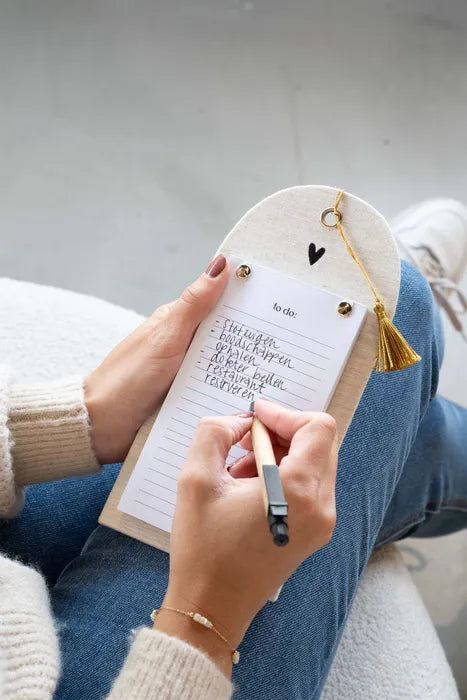 to do:
- stofzuigen
- boodschappen
ophalen
- dokter bellen
- restaurant
reserveren